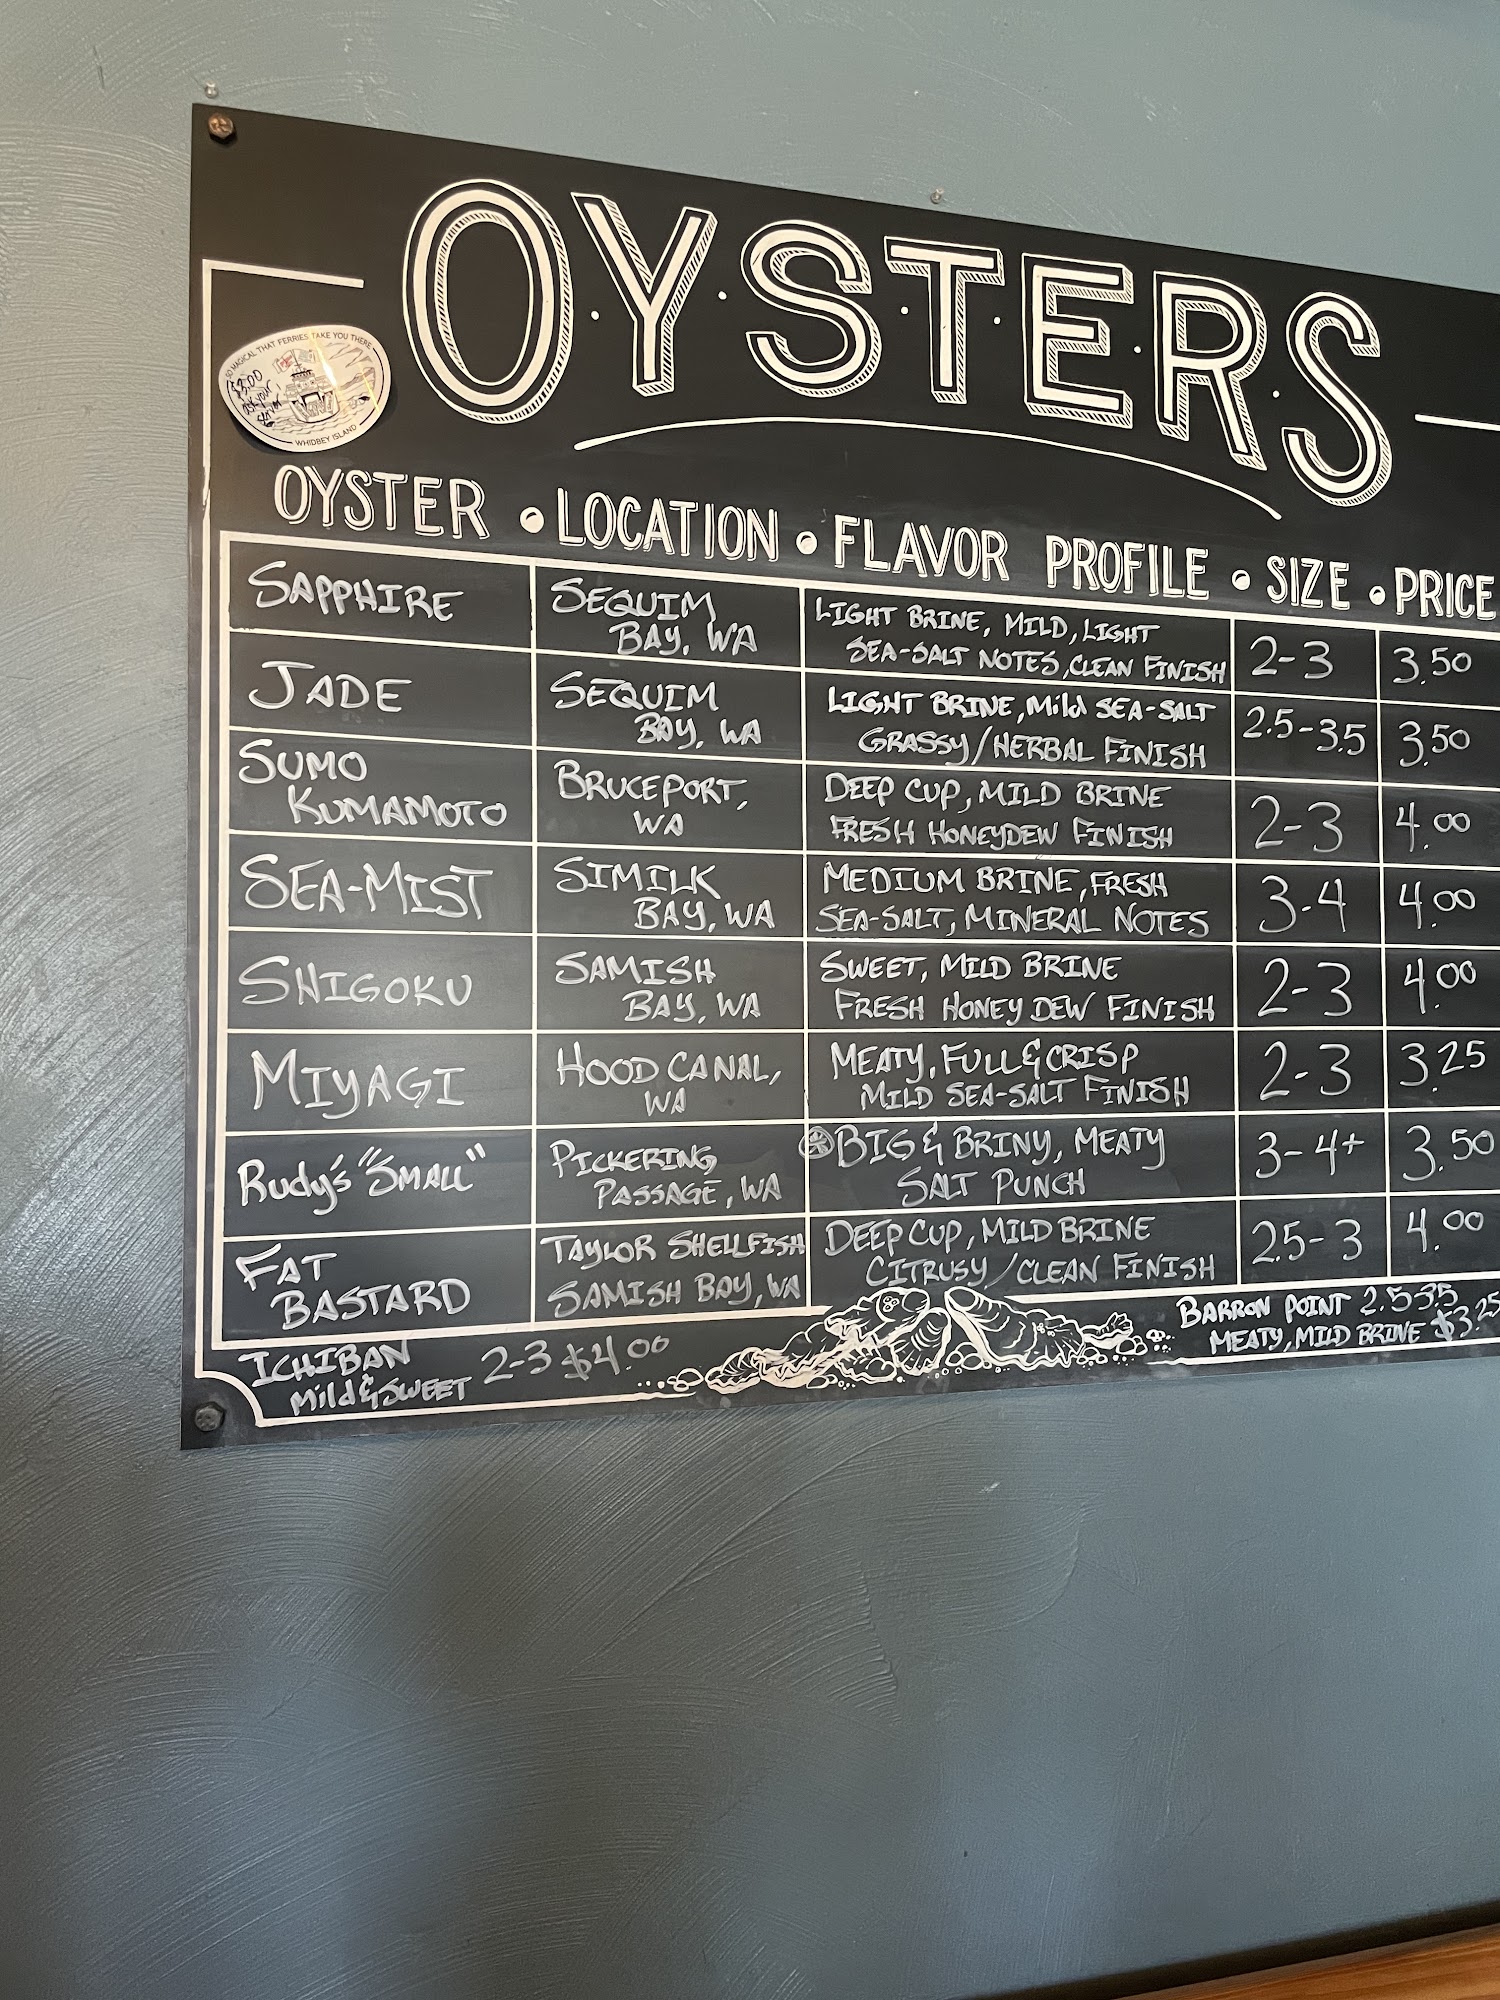 OYSTERS
SO MAGICAL THAT FERRIES TAKE YOU THERE
$3.00
ask your
server
WHIDBEY ISLAND
OYSTER • LOCATION • FLAVOR PROFILE • SIZE • PRICE
SAPPHIRE
SEQUIM
BAY, WA
LIGHT BRINE, MILD, LIGHT
SEA-SALT NOTES, CLEAN FINISH
2-3
3.50
JADE
SEQUIM
BAY, WA
LIGHT BRINE, Mild SEA-SALT
GRASSY/HERBAL FINISH
2.5-3.5
3.50
SUMO
KUMAMOTO
BRUCEPORT,
WA
DEEP CUP, MILD BRINE
FRESH HONEYDEW FINISH
2-3
4.00
SEA-MIST
SIMILK
BAY, WA
MEDIUM BRINE, FRESH
SEA-SALT, MINERAL NOTES
3-4
4.00
SHIGOKU
SAMISH
BAY, WA
SWEET, MILD BRINE
FRESH HONEY DEW FINISH
2-3
4.00
MIYAGI
HOOD CANAL,
WA
MEATY, FULL & CRISP
MILD SEA-SALT FINISH
2-3
3.25
Rudy's "SMALL"
PICKERING
PASSAGE, WA
BIG & BRINY, MEATY
SALT PUNCH
3-4+
3.50
FAT
BASTARD
TAYLOR SHELLFISH
SAMISH BAY, WA
DEEP CUP, MILD BRINE
CITRUSY/CLEAN FINISH
2.5-3
4.00
ICHIBAN 2-3 $4.00
Mild & SWEET
BARRON POINT 2.5-3.5
MEATY, MILD BRINE $3.25